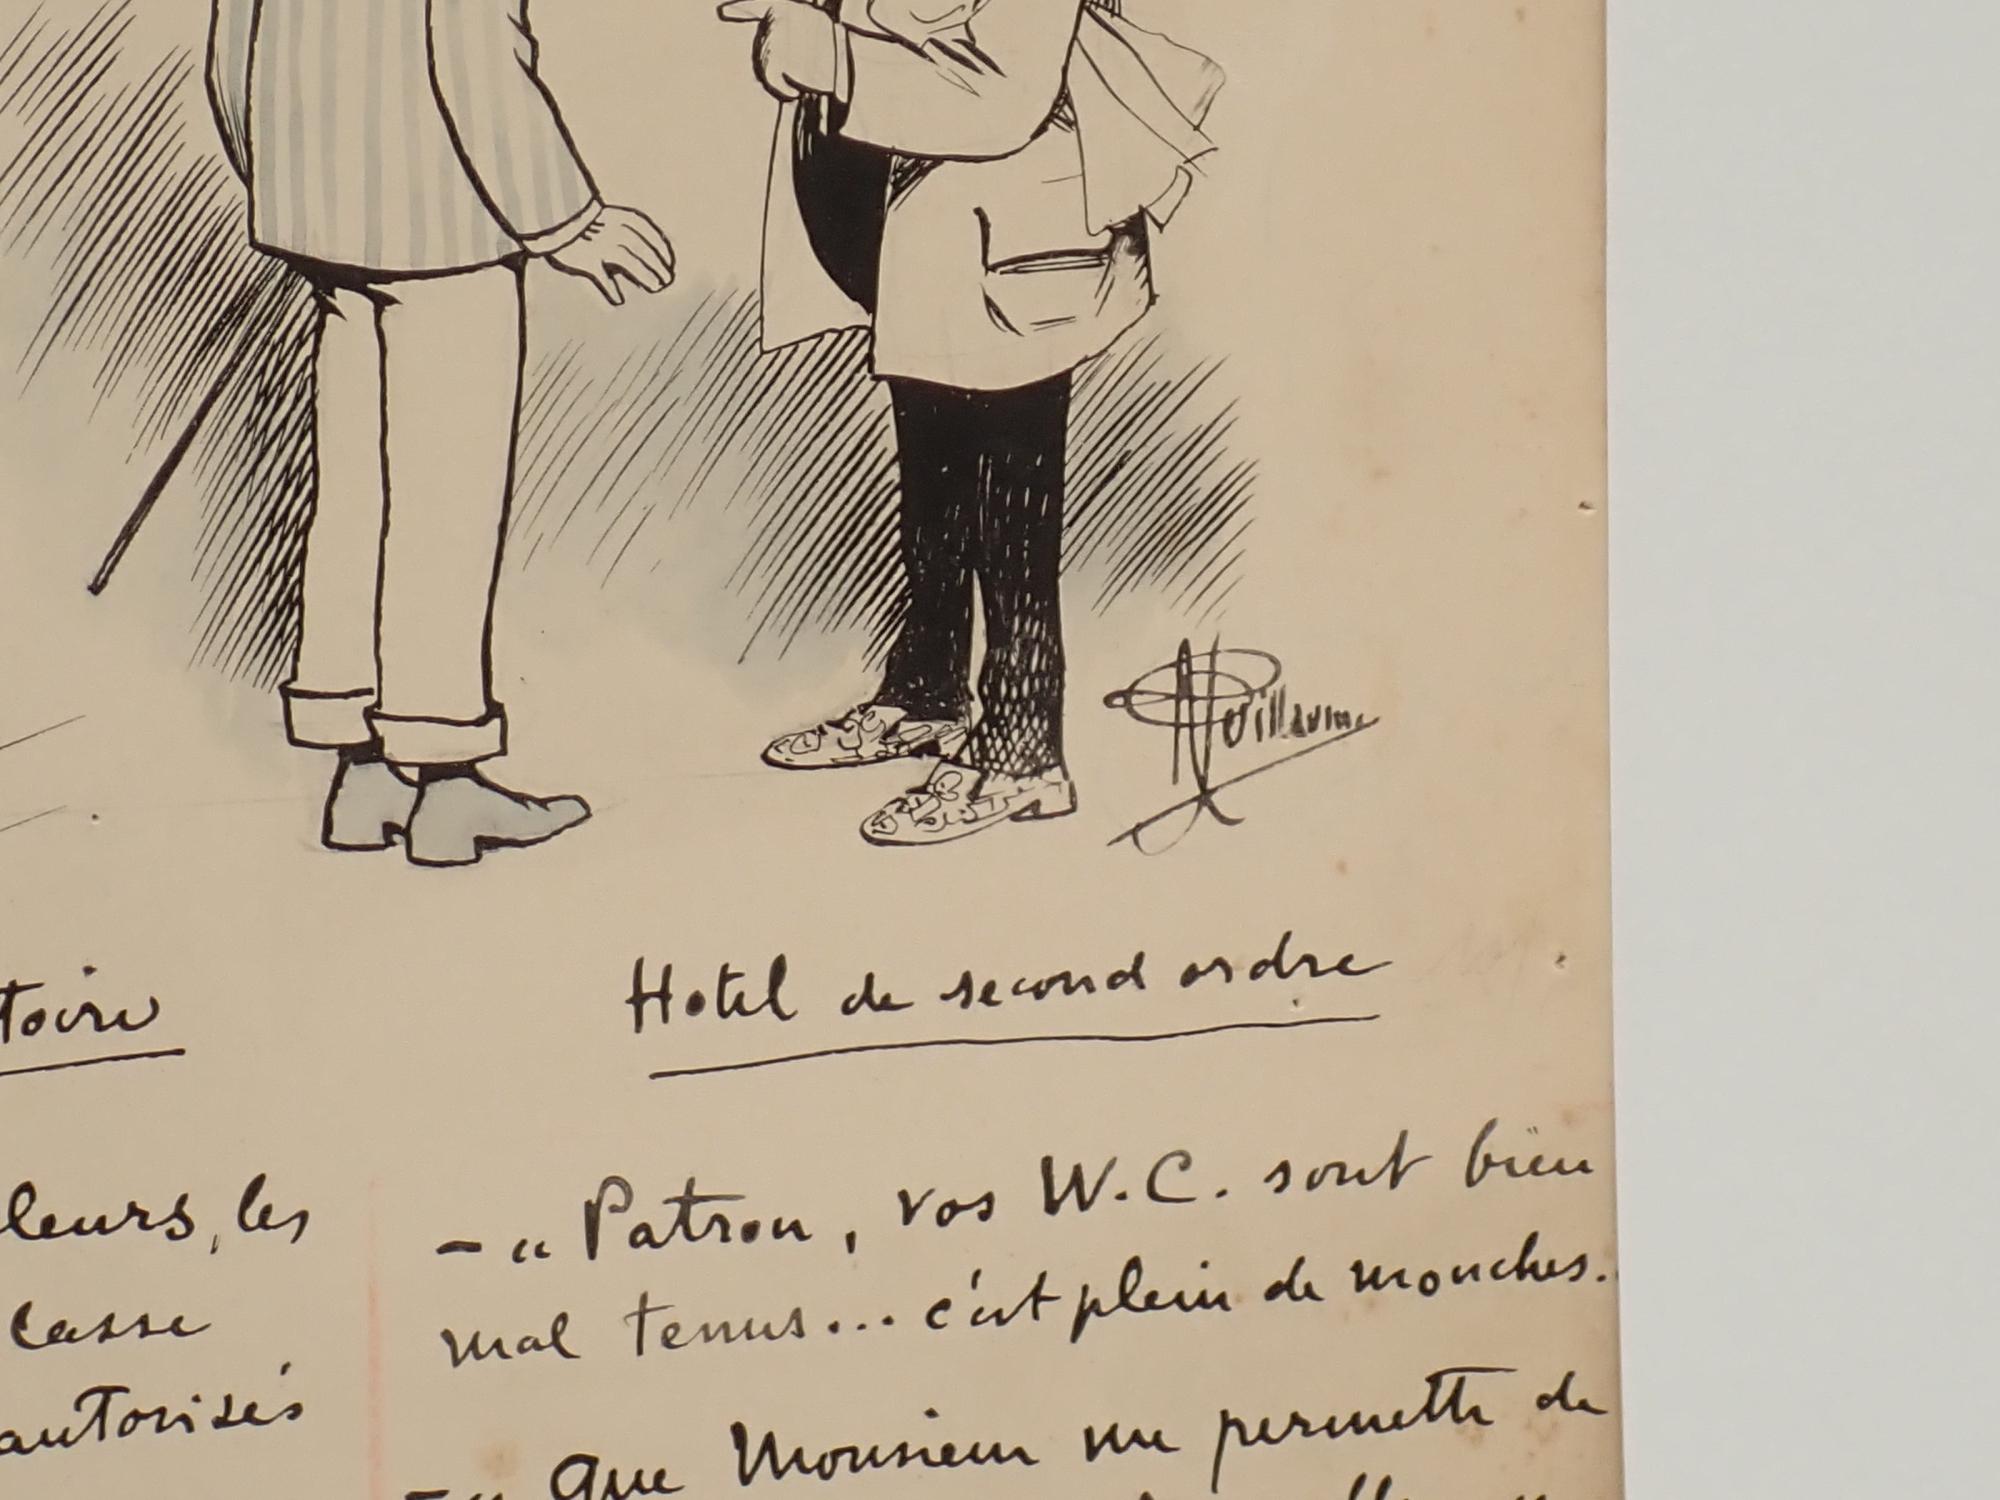 Guillaume
toire
Hotel de second ordre
leurs, les
casse
autorisés
- " Patron, vos W.C. sont bien
mal tenus... c'est plein de mouches.
- " Que Monsieur me permette de